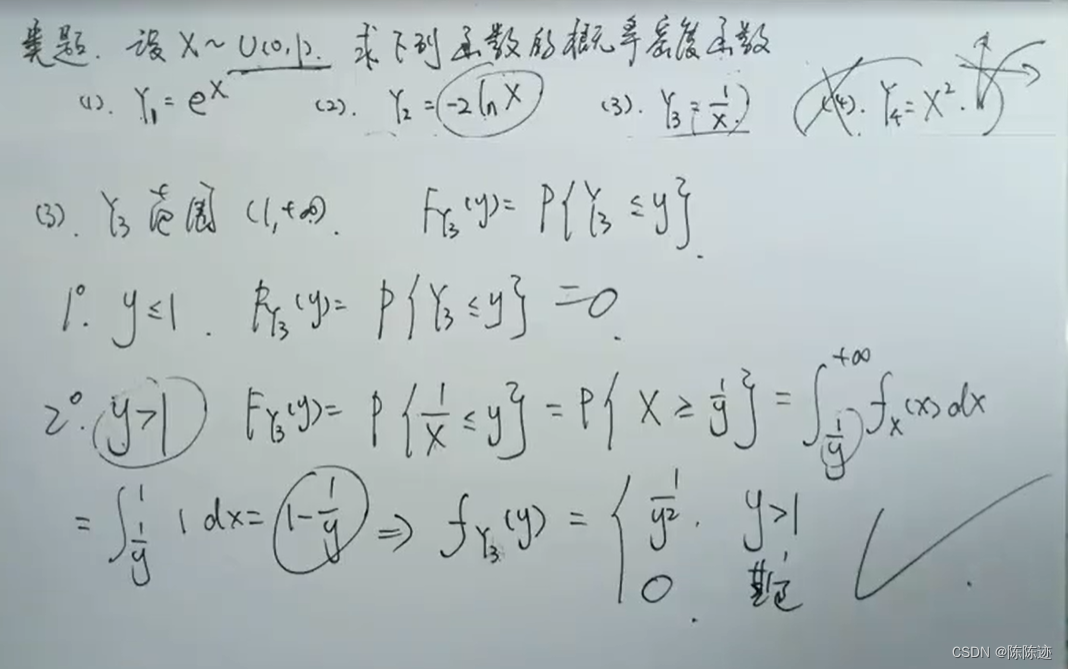 类题. 设 X ~ U(0,1). 求下列函数的概率密度函数
(1). Y₁ = e^X (2). Y₂ = -2 ln X (3). Y₃ = 1/X. (4). Y₄ = X².
(3). Y₃ 范围 (1,+∞). F_{Y₃}(y) = P{Y₃ ≤ y}.
1°. y ≤ 1. F_{Y₃}(y) = P{Y₃ ≤ y} = 0.
2°. y>1 F_{Y₃}(y) = P{1/X ≤ y} = P{X ≥ 1/y} = ∫_{1/y}^{+∞} f_X(x) dx
= ∫_{1/y}^{1} 1 dx = 1 - 1/y ⇒ f_{Y₃}(y) = { 1/y², y>1
0, 其它.
CSDN @陈陈迹